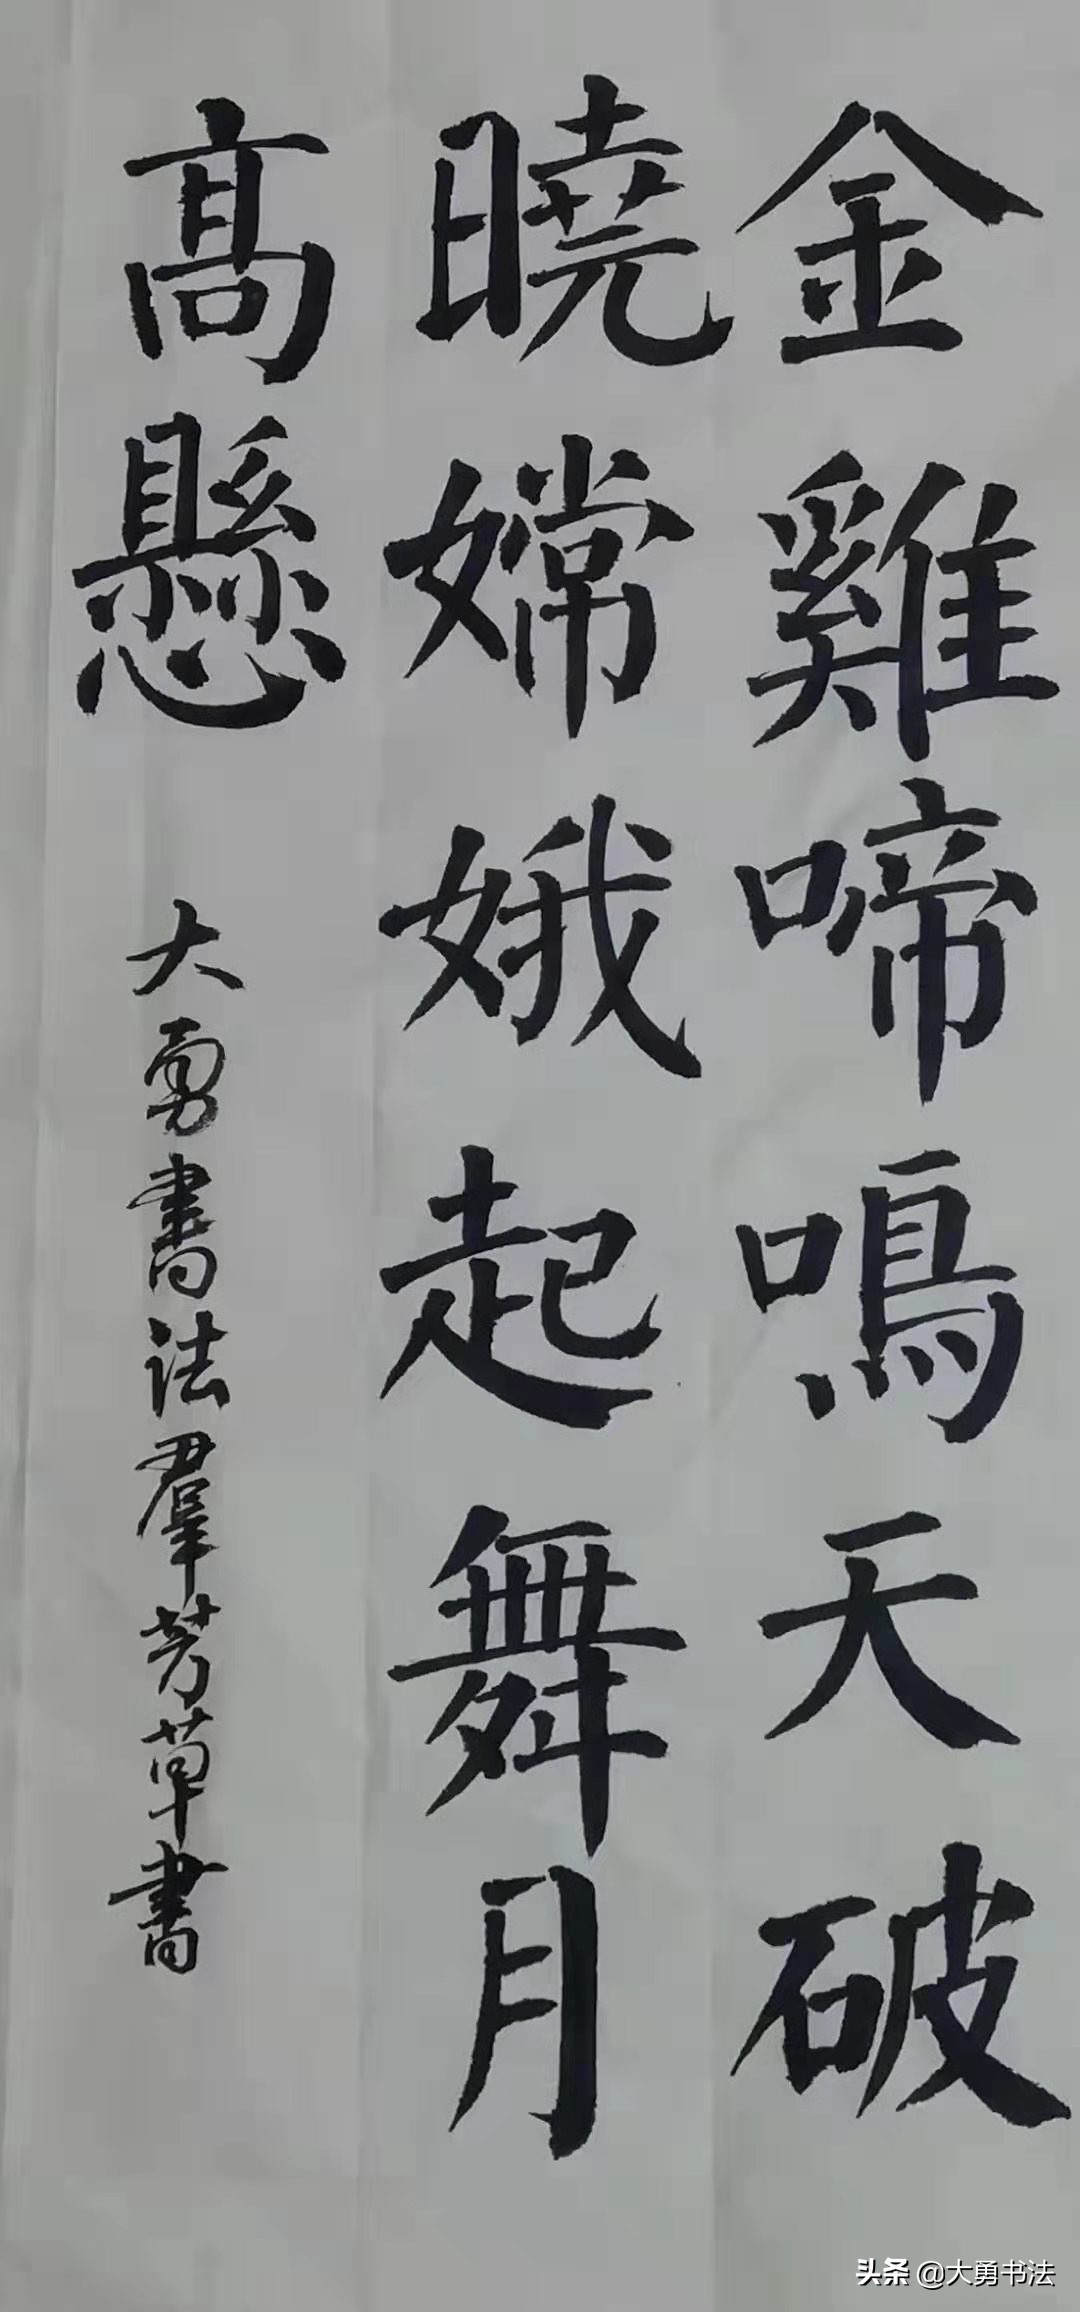 金雞啼鳴天破
曉嫦娥起舞月
高懸
大勇書法羣芳草書
头条 @大勇书法